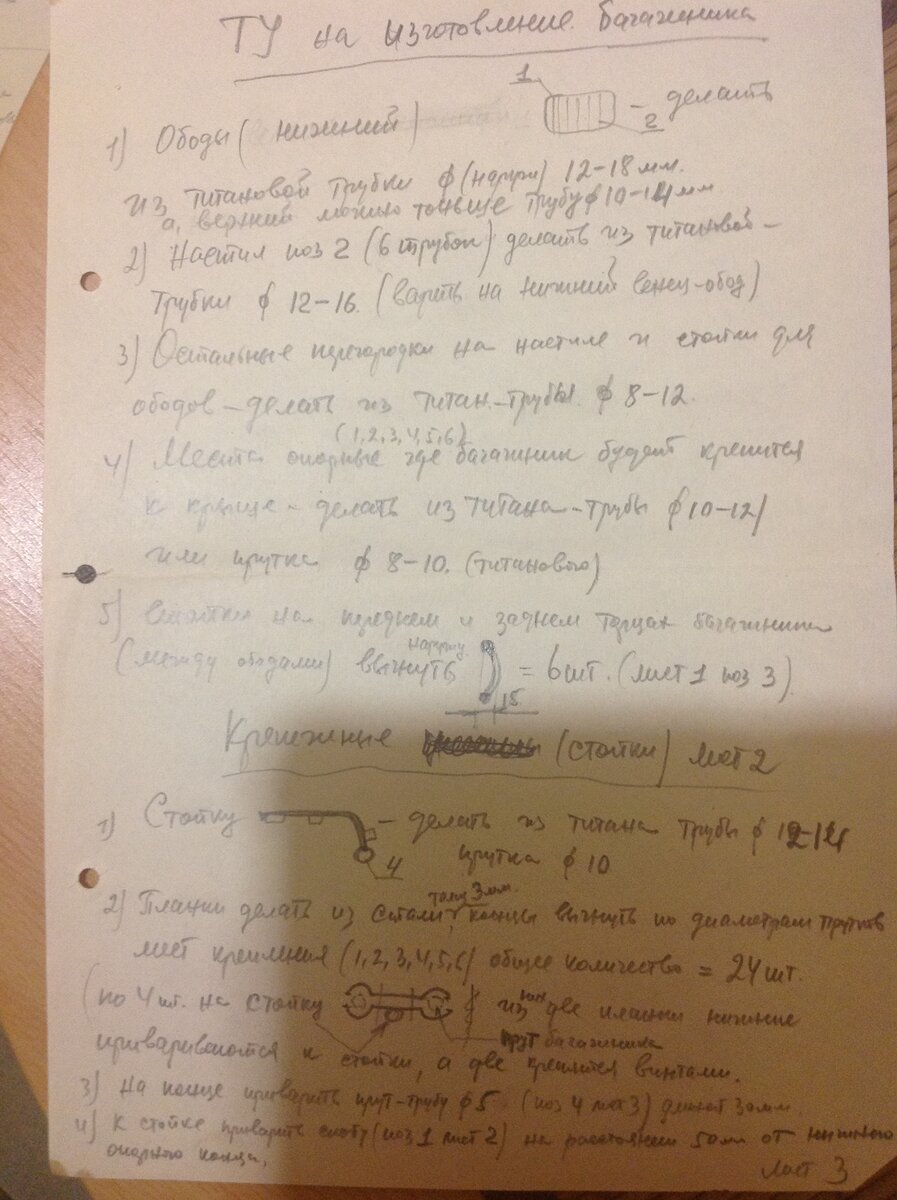 ТУ на изготовление багажника
1
1) Ободы (нижний) 2 – делать
из титановой трубки ф (наруж) 12–18 мм.
а, верхний можно тоньше трубу ф 10–14 мм
2) Настил поз 2 (6 трубок) делать из титановой –
трубки ф 12–16. (варить на нижний венец-обод)
3) Остальные перегородки на настиле и стойки для
ободов – делать из титан–трубы ф 8–12.
(1,2,3,4,5,6)
4) Места опорные где багажник будет крепится
к крыше – делать из титана–трубы ф 10–12/
или прутка ф 8–10. (титанового)
5) стойки на переднем и заднем торцах багажника
(между ободами) выгнуть наружу = 6 шт. (лист 1 поз 3)
15
Крепежные (стойки) лист 2
1) Стойку – делать из титана трубы ф 12–14
4 прутка ф 10
2) Планки делать из стали толщ 3 мм. концы выгнуть по диаметрам прутков
мест крепления (1,2,3,4,5,6) общее количество = 24 шт.
(по 4 шт. на стойку из них две планки нижние
прут багажника
привариваются к стойки, а две крепятся винтами.
3) На конце приварить прут–трубу ф 5 (поз 4 лист 3) длиной 30 мм.
4) К стойке приварить (поз 1 лист 2) на расстоянии 50 мм от нижнего
опорного конца.
лист 3